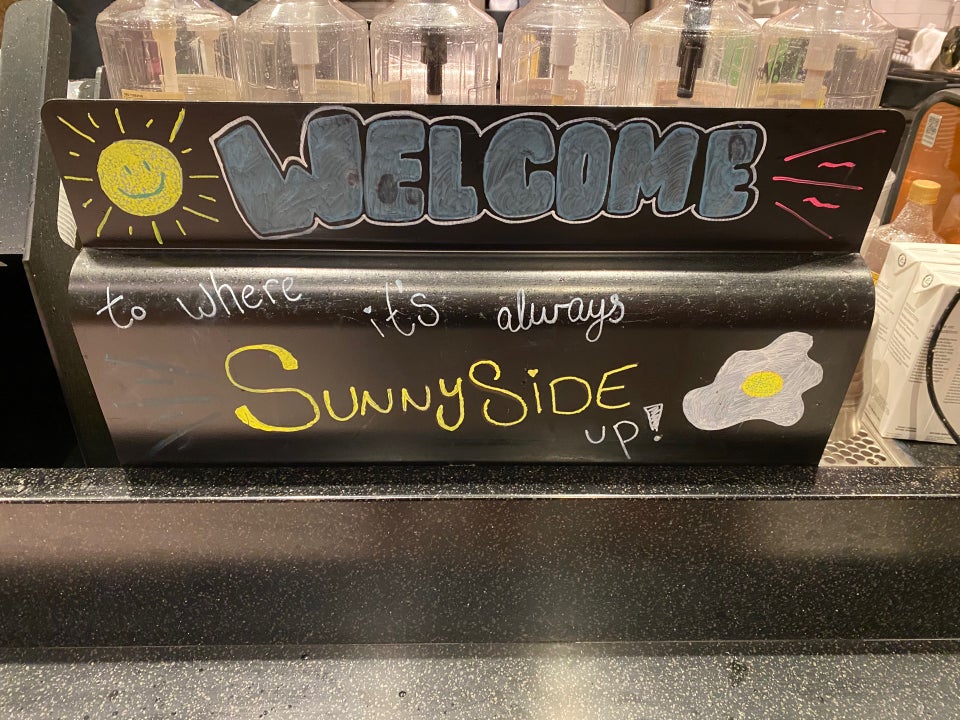 WELCOME
to where it's always
SUNNYSiDE
up!